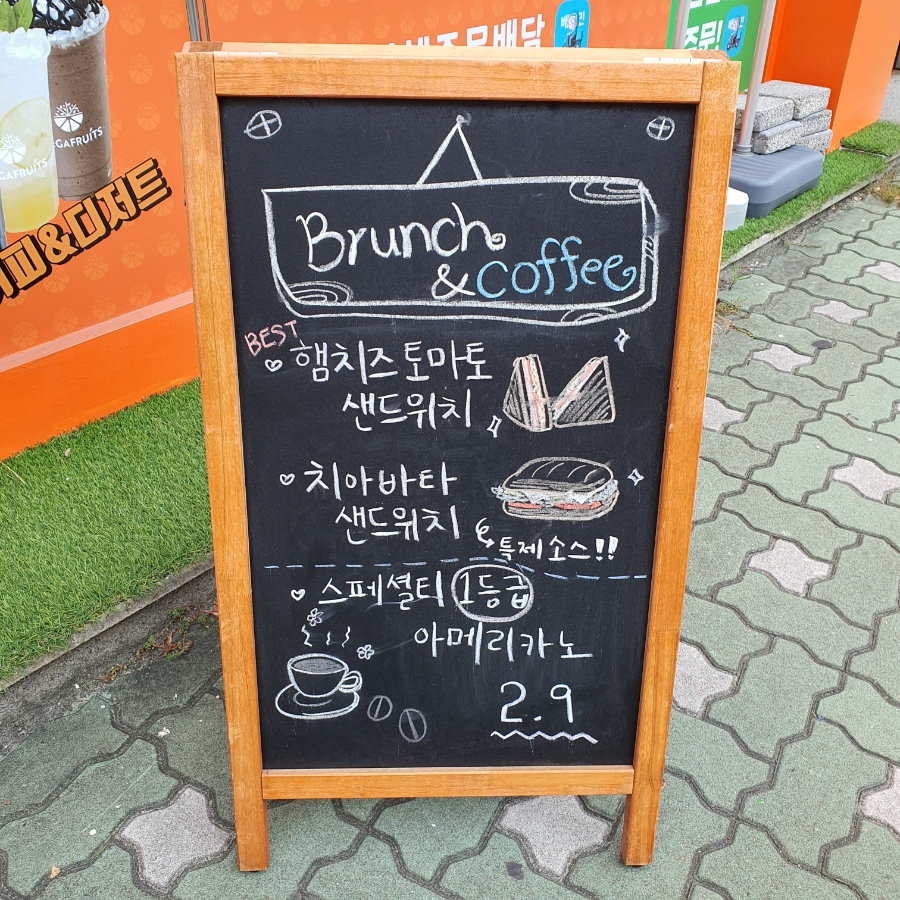 주문배달
배민
주문!
GAFRUITS
GAFRUITS
피&디저트
Brunch
& Coffee
BEST
햄치즈토마토
샌드위치
치아바타
샌드위치
특제소스!!
스페셜티 1등급
아메리카노
2.9